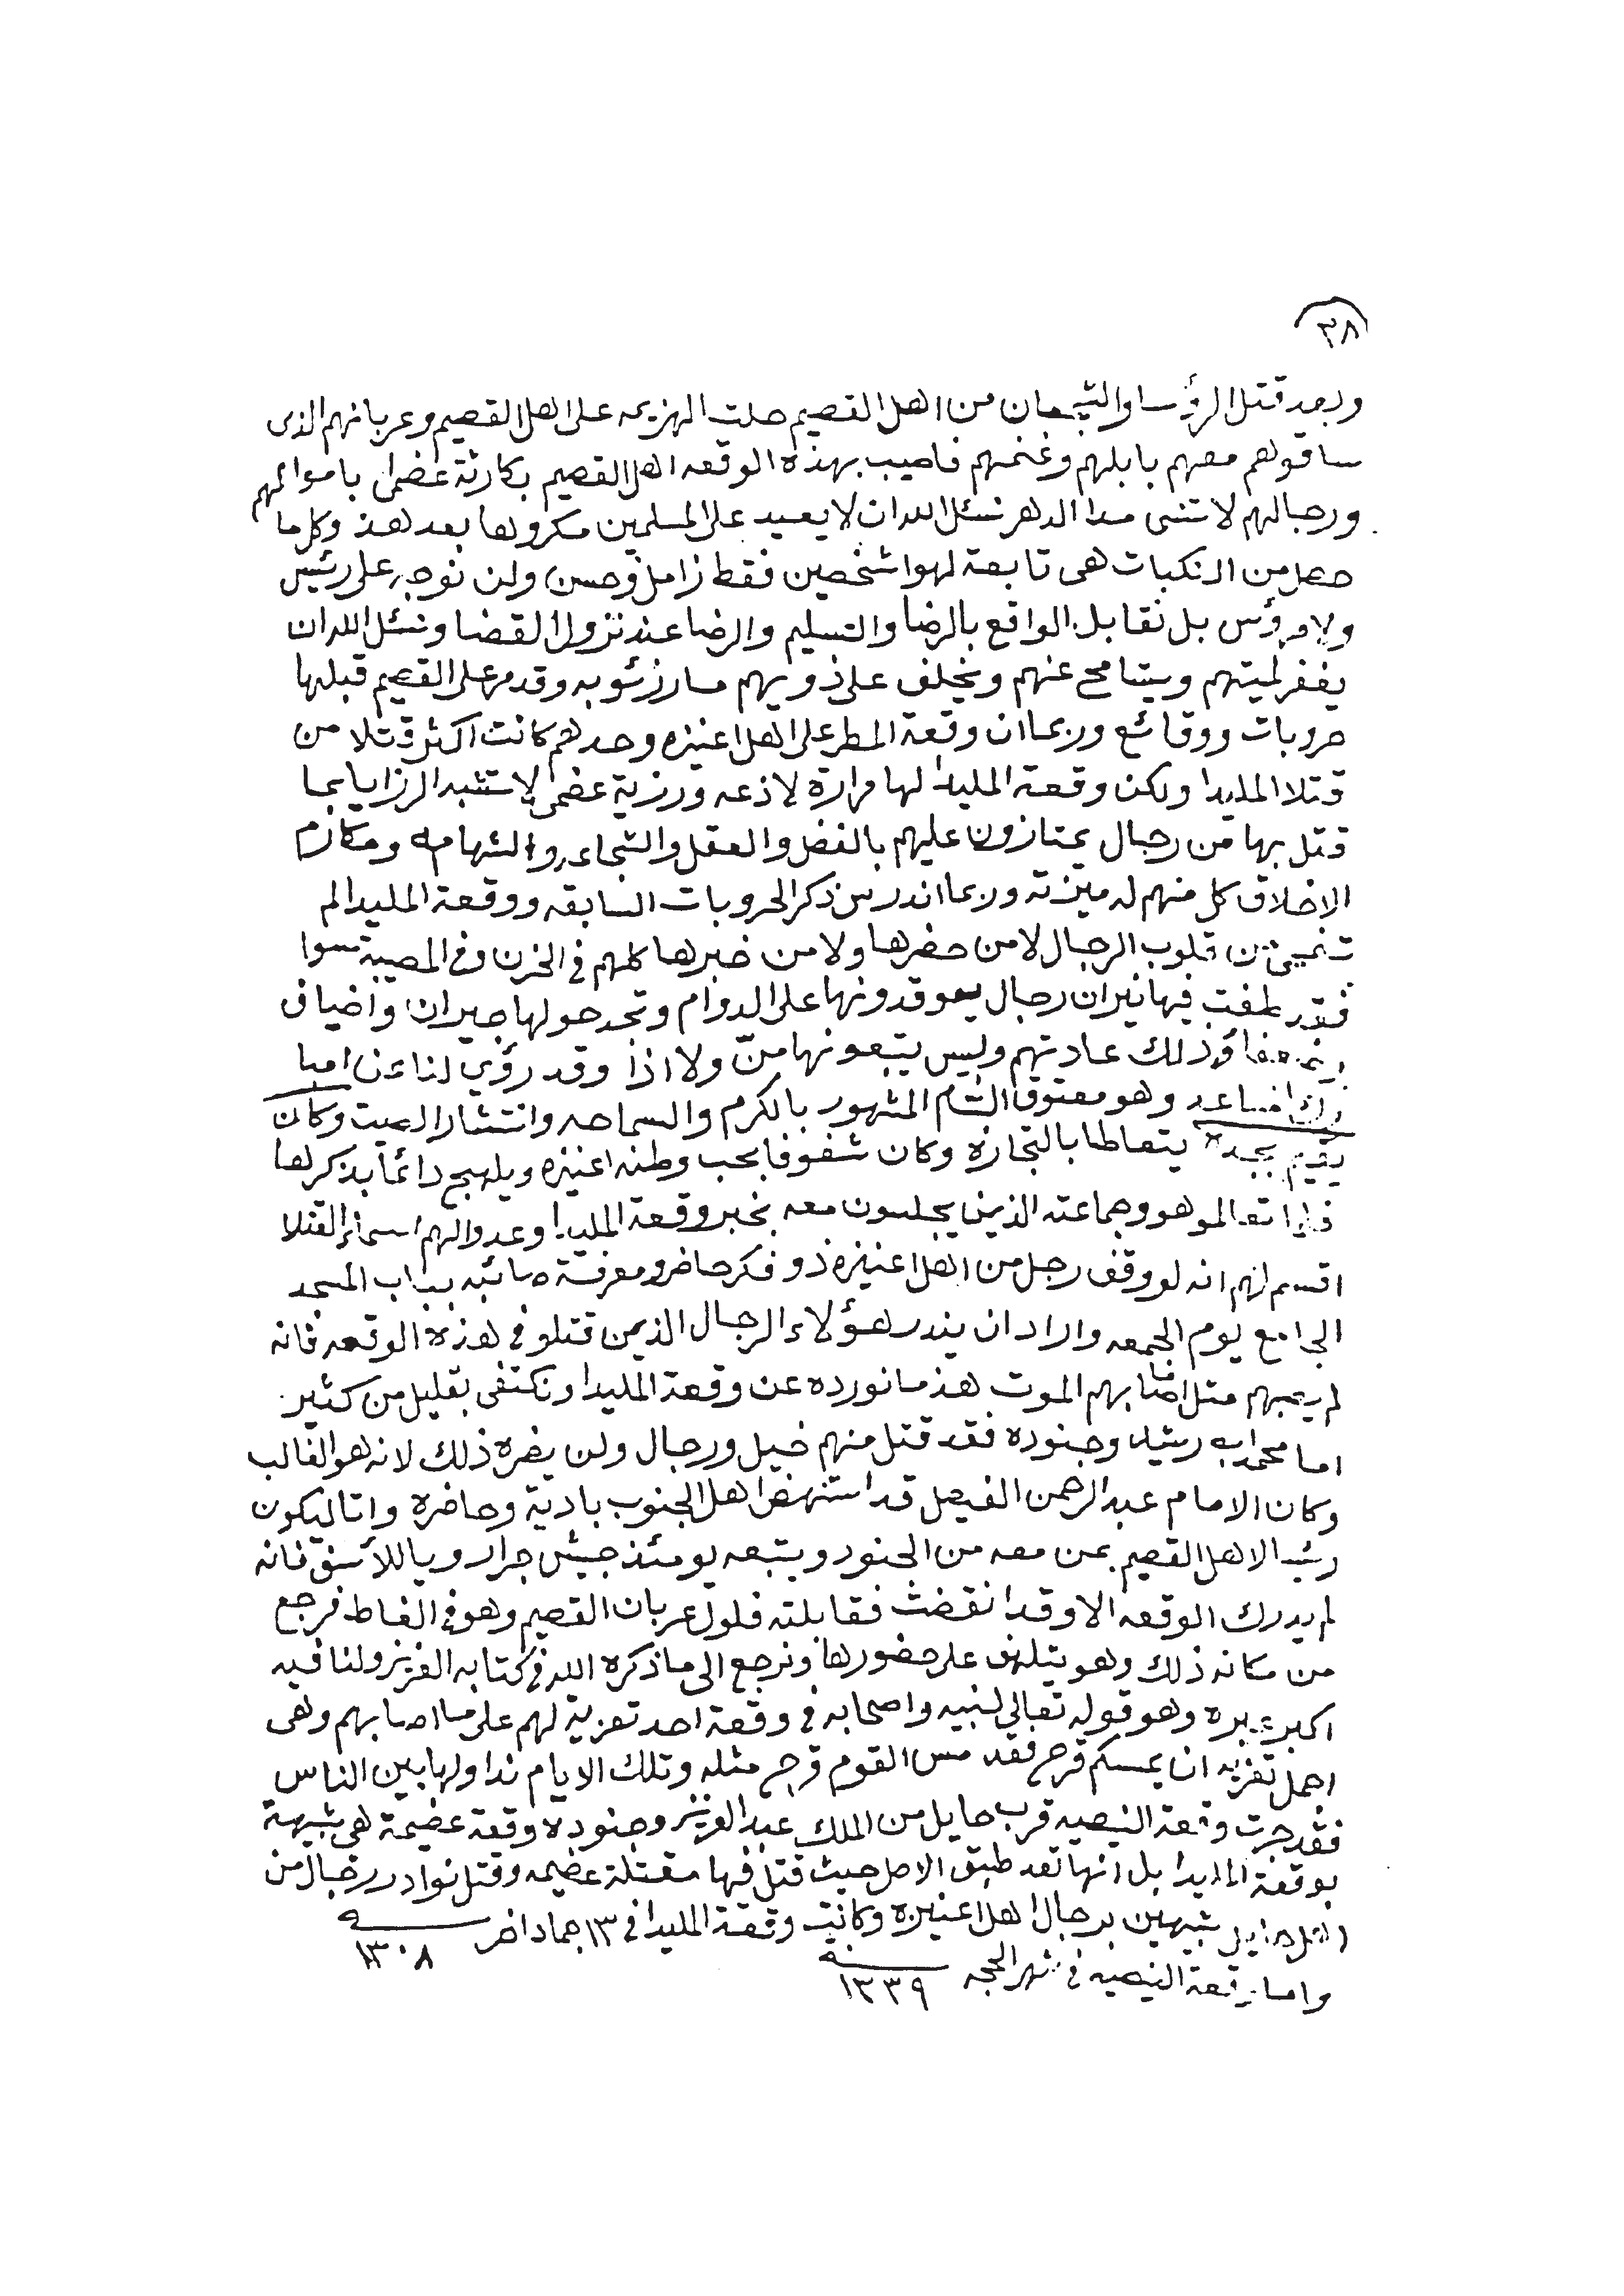 ٣٨
وبعد قتل الرؤسا والشجعان من اهل القصيم صلت الهزيمه على اهل القصيم وعربانهم الذى
ساقوهم معهم بابلهم وغنمهم فاصيب بهذه الوقعه اهل القصيم بكارثة عضمى باموالهم
ورجالهم لا تنسى مدا الدهر نسئل الله ان لا يعيد على المسلمين مكروها بعد هذ وكل ما
حصل من النكبات هى تابعة لهوا شخصين فقط زامل وحسن ولن نوجه على رئيس
ولا مرؤس بل نقابل الواقع بالرضا والتسليم والرضا عند نزول القضا ونسئل الله ان
يغفر لميتهم ويتسامح عنهم ويخلف على ذويهم ما رزئو به وقد مر على القصيم قبلها
حروبات ووقائع وربما ان وقعة المطر على اهل اعنيزه وحدهم كانت اكثر قتلا من
قتلا المليدا ولكن وقعة المليدا لها مرارة لاذعه ورزية عضمى لا تشبه الرزايا بما
قتل بها من رجال يمتازون عليهم بالفضل والعقل والشجاعه والشهامه ومكارم
الاخلاق كل منهم له ميزته وربما اندرس ذكر الحروبات السابقه ووقعة المليدا لم
تنمحى من قلوب الرجال لا من حضرها ولا من خبرها كلهم فى الحزن وفى المصيبة سوا
فقد طفت فيها نيران رجال يوقدونها على الدوام وتجد حولها جيران واضياف
وضعفا وذلك عادتهم وليس يتبعونها منّ ولا اذا وقد رؤي لنا عن امبا
رك المساعد وهو معتوق البسام المشهور بالكرم والسماحه وانتشار الصيت وكان
يقيم بجده يتعاطا بالتجارة وكان شغوفا بحب وطنه اعنيزه ويلهج دائما بذكرها
فلما تعالمو هو وجماعته الذين يجلسون معه بخبر وقعة المليدا وعدوا لهم اسماء القتلا
اقسم لهم انه لو وقف رجل من اهل اعنيزة ذو فكر حاضر ومعرفة صائبه بباب المسجد
الجامع يوم الجمعه واراد ان يندر هؤلاء الرجال الذين قتلو فى هذه الوقعه فانه
لم يصبهم مثل اصابهم الموت هذ ما نورده عن وقعة المليدا ونكتفى بقليل من كثير
اما محمد ابن رشيد وجنوده فقد قتل منهم خيل ورجال ولن يضره ذلك لانه هو الغالب
وكان الامام عبد الرحمن الفيصل قد استنهض اهل الجنوب بادية وحاضرة واتا ليكون
رئيدا لاهل القصيم بمن معه من الجنود ويتبعه يومئذ جيش جرار ويا للأسف فانه
لم يدرك الوقعه الا وقد انقضت فقابلته فلول عربان القصيم وهو فى الغاط فرجع
من مكانه ذلك وهو يتلهف على حضورها ونرجع الى ما ذكره الله فى كتابه العزيز ولنا فيه
اكبر عبره وهو قوله تعالى لنبيه واصحابه فى وقعة احد تعزية لهم على ما اصابهم وهى
اجمل تعزيه ان يمسسكم قرح فقد مس القوم قرح مثله وتلك الايام نداولها بين الناس
فقد جرت وقعة النيصيه قرب حايل من الملك عبد العزيز وجنوده وقعة عضيمة هى شبيهة
بوقعة المليدا بل انها تعد طبق الاصل حيث قتل فيها مقتلة عضيمه وقتل نوادر رجال من
اهل حايل شبيهين برجال اهل اعنيزه وكانت وقعة المليدا فى ١٣ جماد اخر سنه ١٣٠٨
واما وقعة النيصيه فى شهر الحجه سنه ١٣٣٩